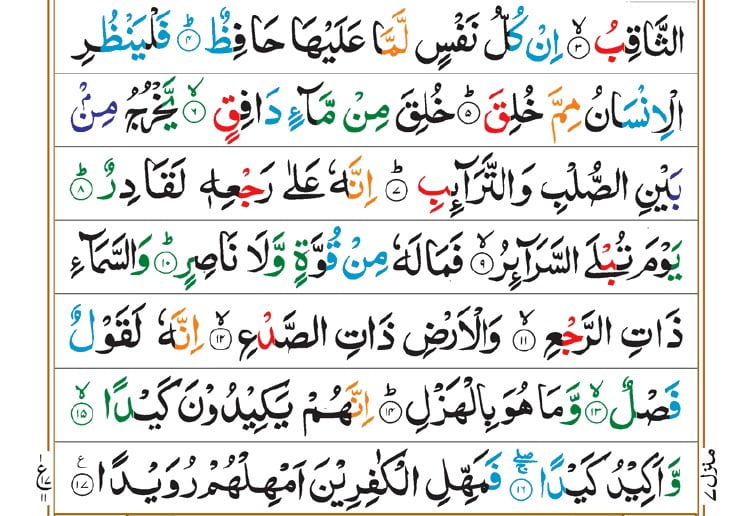 الثَّاقِبُ ۙ﴿۳﴾ اِنْ كُلُّ نَفْسٍ لَّمَّا عَلَيْهَا حَافِظٌ ؕ﴿۴﴾ فَلْيَنْظُرِ
الْاِنْسَانُ مِمَّ خُلِقَ ؕ﴿۵﴾ خُلِقَ مِنْ مَّآءٍ دَافِقٍ ۙ﴿۶﴾ يَّخْرُجُ مِنْۢ
بَيْنِ الصُّلْبِ وَالتَّرَآئِبِ ؕ﴿۷﴾ اِنَّهٗ عَلٰى رَجْعِهٖ لَقَادِرٌ ؕ﴿۸﴾
يَوْمَ تُبْلَى السَّرَآئِرُ ۙ﴿۹﴾ فَمَا لَهٗ مِنْ قُوَّةٍ وَّلَا نَاصِرٍ ؕ﴿۱۰﴾ وَالسَّمَآءِ
ذَاتِ الرَّجْعِ ۙ﴿۱۱﴾ وَالْاَرْضِ ذَاتِ الصَّدْعِ ۙ﴿۱۲﴾ اِنَّهٗ لَقَوْلٌ
فَصْلٌ ۙ﴿۱۳﴾ وَّمَا هُوَ بِالْهَزْلِ ؕ﴿۱۴﴾ اِنَّهُمْ يَكِيْدُوْنَ كَيْدًا ۙ﴿۱۵﴾
وَّاَكِيْدُ كَيْدًا ۚۖ﴿۱۶﴾ فَمَهِّلِ الْكٰفِرِيْنَ اَمْهِلْهُمْ رُوَيْدًا ﴿۱۷﴾ع
منزل ۷
ع ۱۷ ۱۱